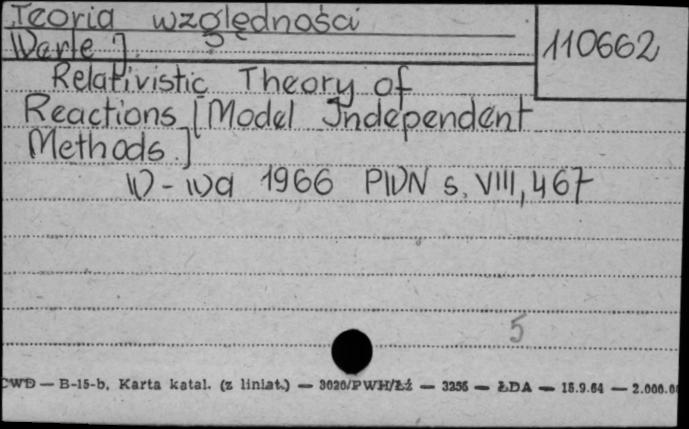 Teoria względności
Werle J.
110662
Relativistic Theory of
Reactions [Model Independent
Methods.]
W-wa 1966 PWN s. VIII, 467
5
CWD — B-15-b. Karta katal. (z liniat.) — 3020/PWH/Łź — 3256 — ŁDA — 15.9.64 — 2.000.0